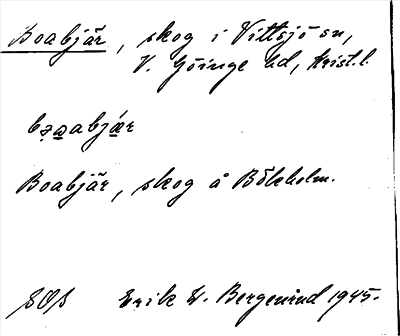 Boabjär, skog i Vittsjö sn,
V. Göinge hd, Krist. l.
Boabjär, skog å Bökholm.
SOS Erik W. Bergenvind 1945.